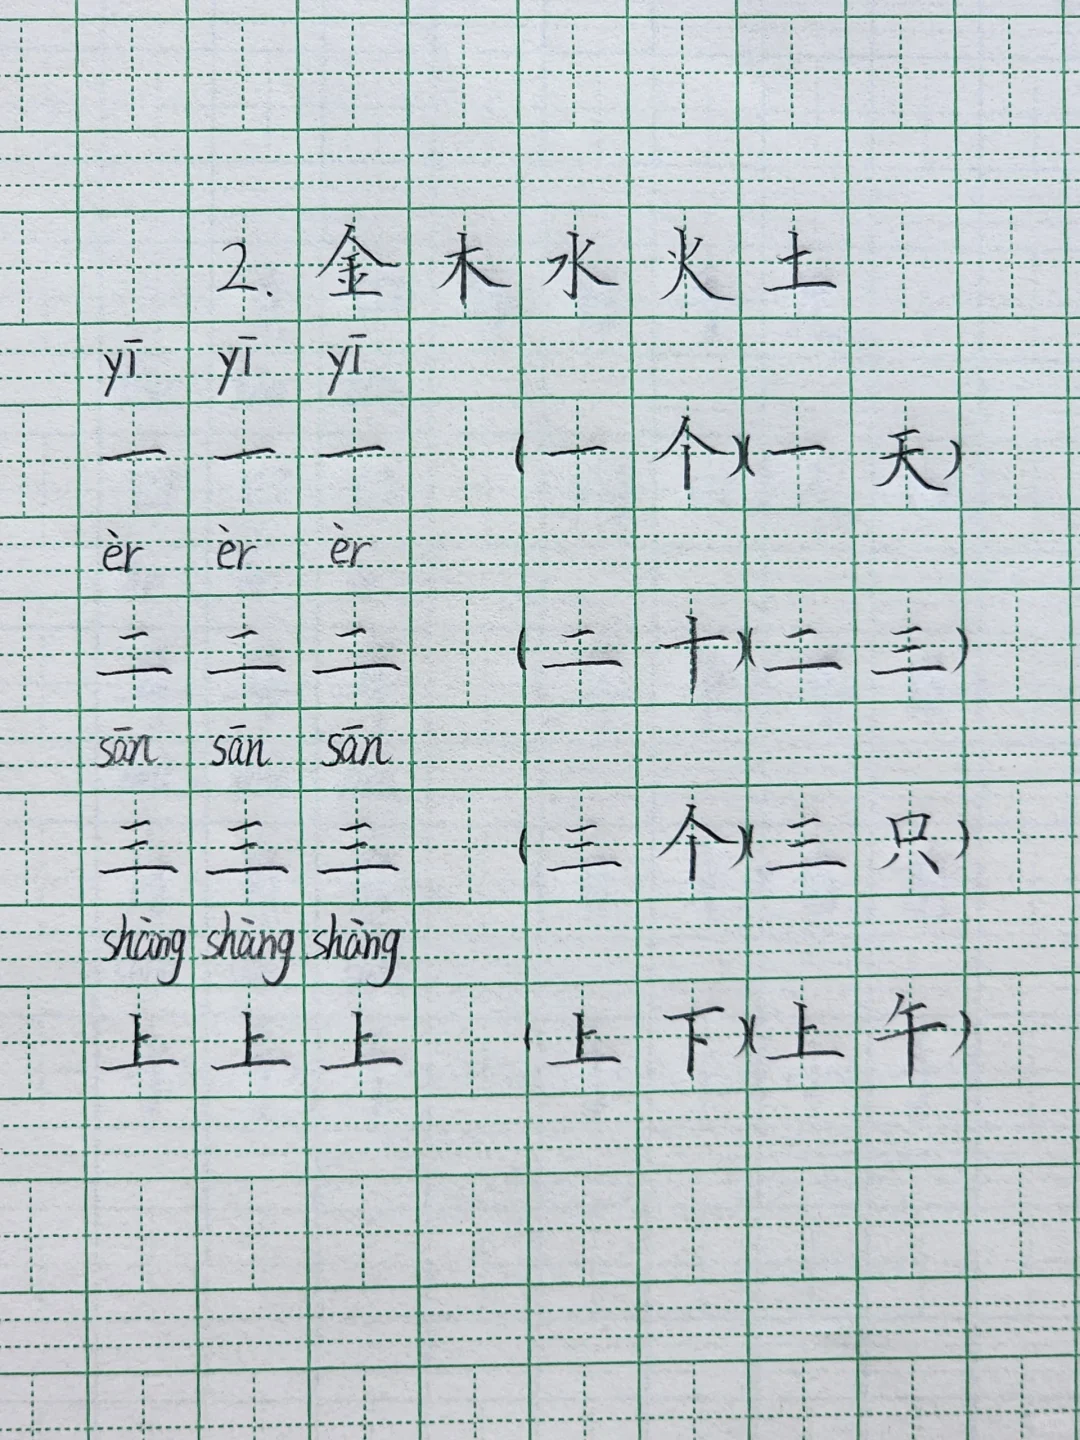 2. 金木水火土
yī yī yī
一 一 一 (一个)(一天)
èr èr èr
二 二 二 (二十)(二三)
sān sān sān
三 三 三 (三个)(三只)
shàng shàng shàng
上 上 上 (上下)(上午)